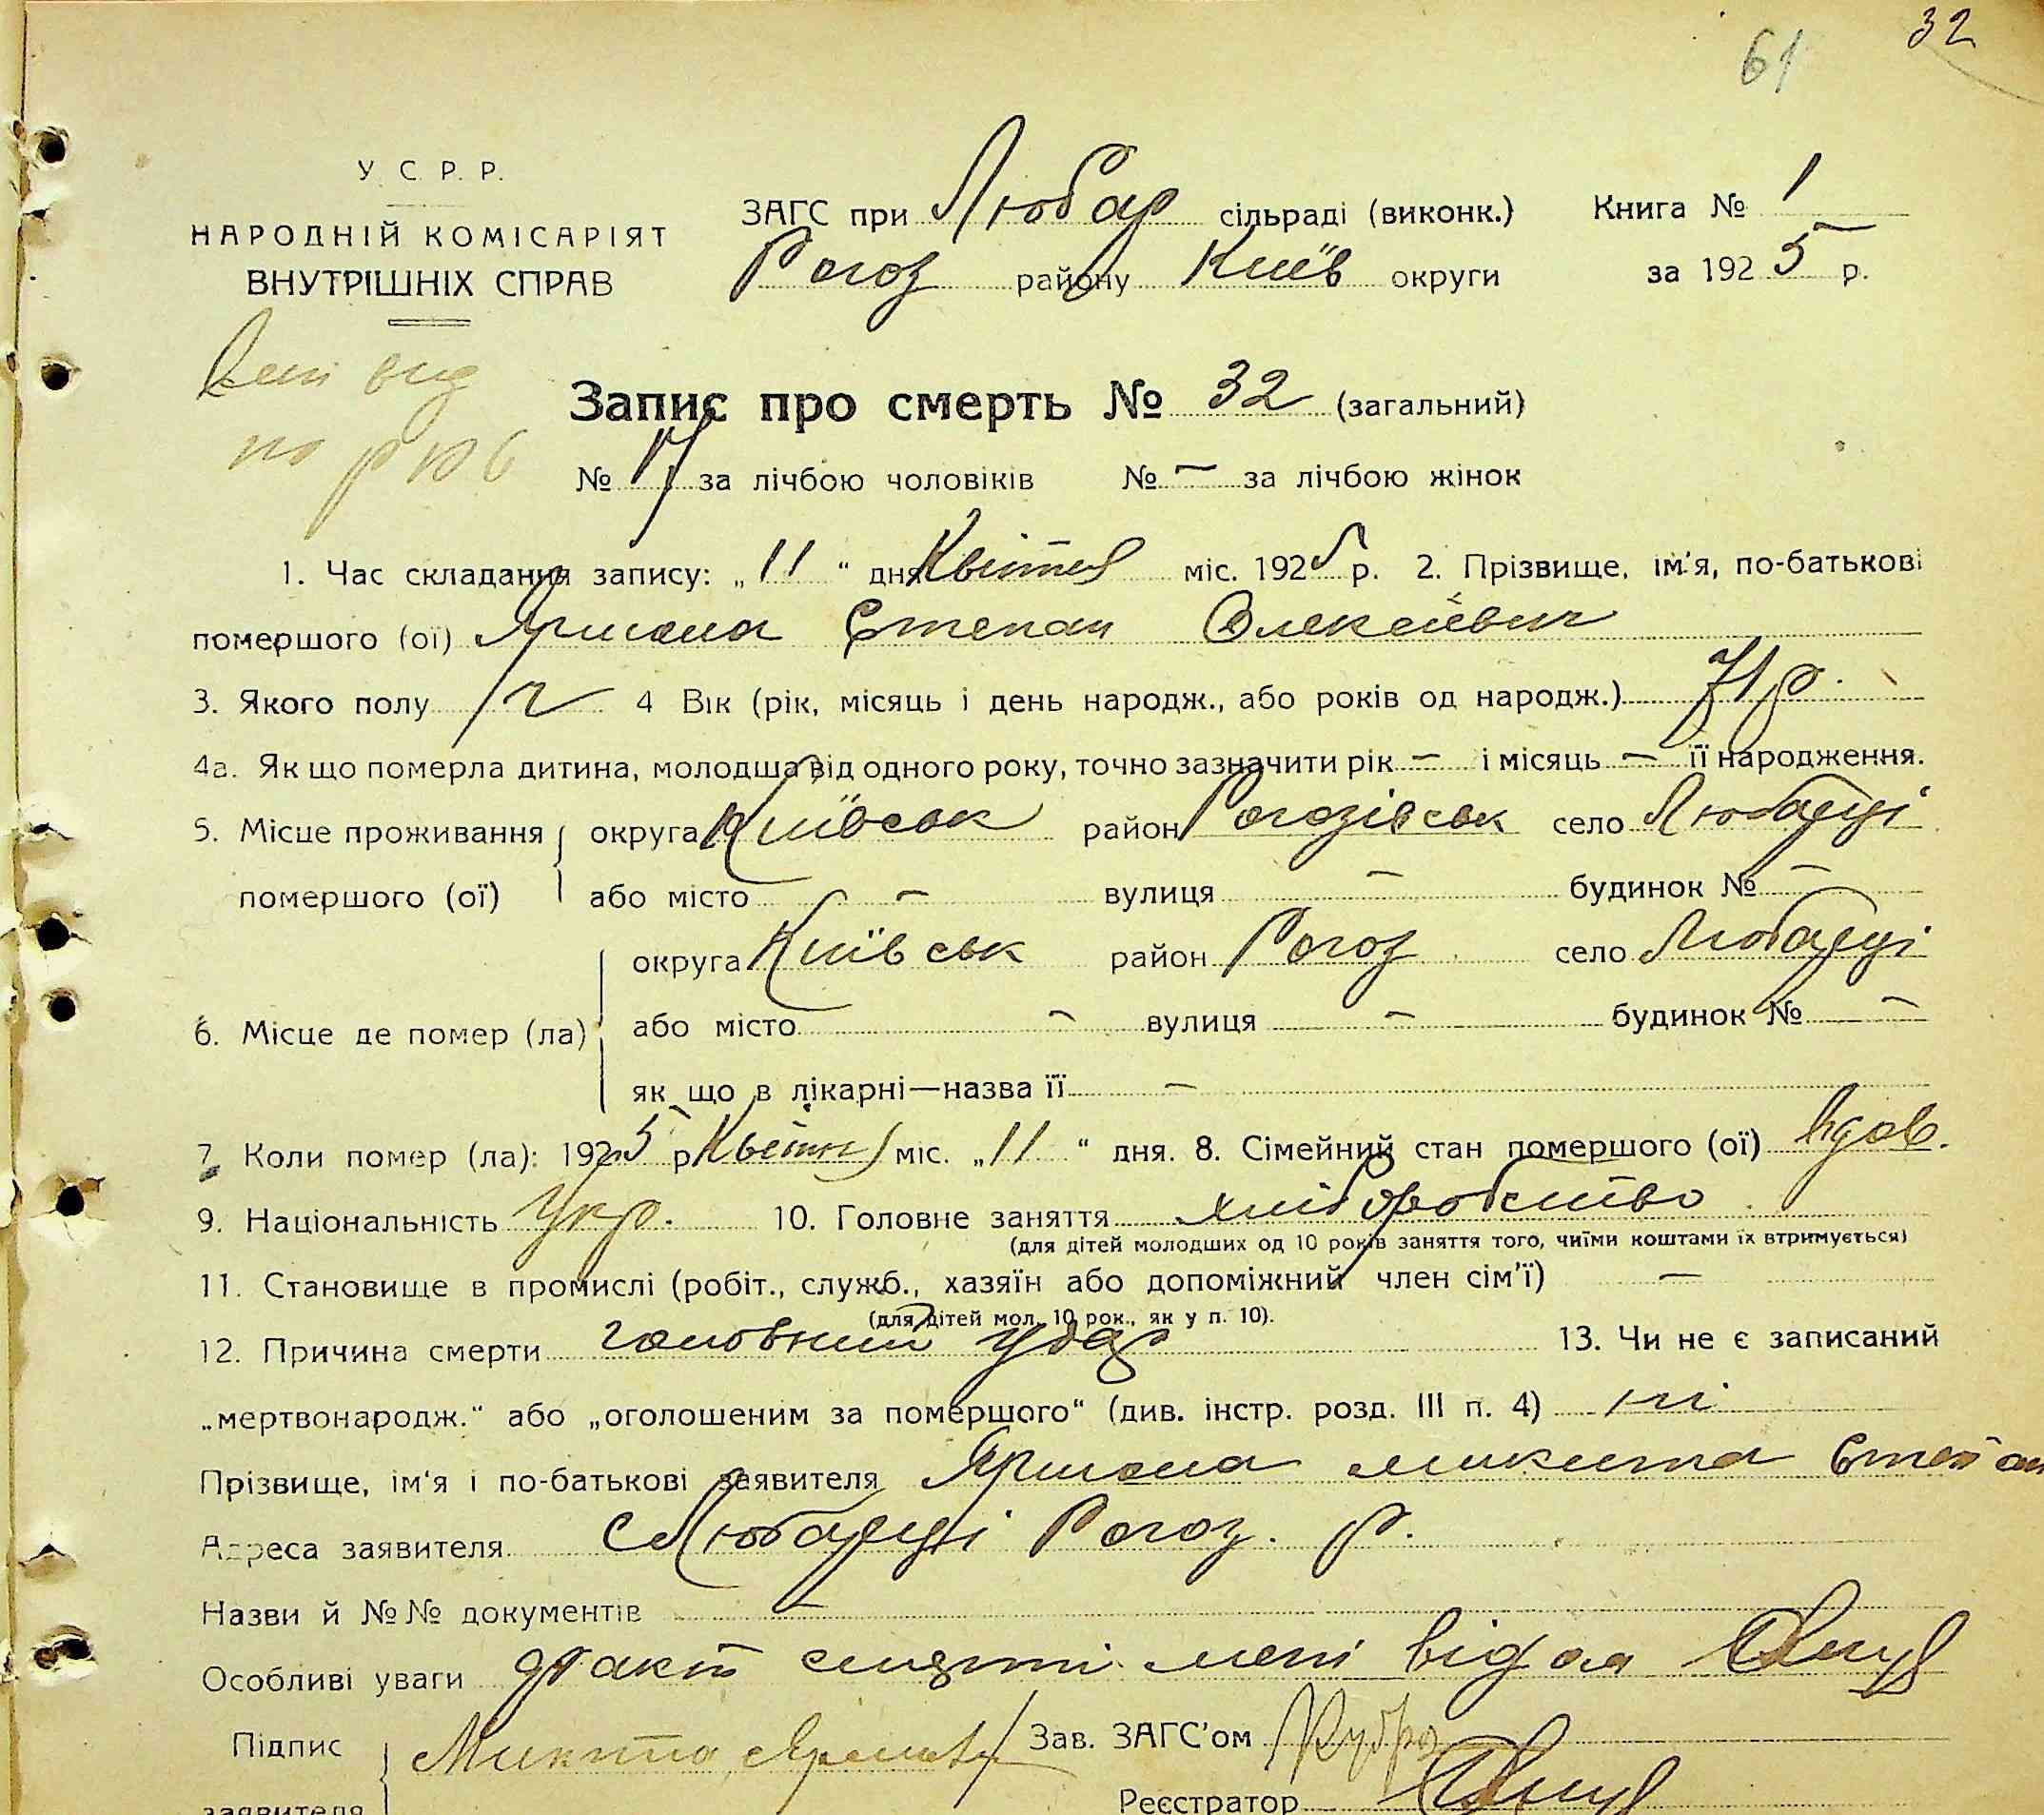 32
61
У. С. Р. Р.
НАРОДНІЙ КОМІСАРІЯТ
ВНУТРІШНІХ СПРАВ
ЗАГС при Любар сільраді (виконк.) Книга № 1
Рогоз району Київ округи за 1925 р.
Запис про смерть № 32 (загальний)
№ 17 за лічбою чоловіків № — за лічбою жінок
1. Час складання запису: „11“ дня Квітня міс. 1925 р. 2. Прізвище, ім'я, по-батькові
помершого (ої) Степан Олексієвич
3. Якого полу ч 4 Вік (рік, місяць і день народж., або років од народж.) 71 р.
4а. Як що померла дитина, молодша від одного року, точно зазначити рік — і місяць — її народження.
5. Місце проживання округа Київськ район Рогозівськ село Любарці
помершого (ої) або місто — вулиця — будинок № —
округа Київськ район Рогоз село Любарці
6. Місце де помер (ла) або місто — вулиця — будинок № —
як що в лікарні—назва її —
7. Коли помер (ла): 1925 р Квітня міс. „11“ дня. 8. Сімейний стан помершого (ої) вдов.
9. Національність Укр. 10. Головне заняття хліборобство
(для дітей молодших од 10 років заняття того, чиїми коштами їх втримується)
11. Становище в промислі (робіт., служб., хазяїн або допоміжний член сім'ї) —
(для дітей мол. 10 рок., як у п. 10).
12. Причина смерти головний удар 13. Чи не є записаний
„мертвонародж.“ або „оголошеним за помершого“ (див. інстр. розд. III п. 4) ні
Прізвище, ім'я і по-батькові заявителя Микита Степан
Адреса заявителя с Любарці Рогоз. р.
Назви й №№ документів —
Особливі уваги факт смерти мені відом
Підпис Микита Зав. ЗАГС'ом
заявителя Реєстратор